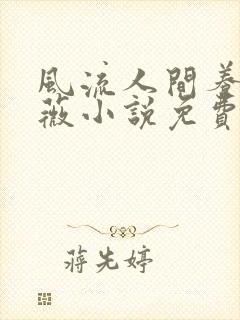 風流人間养
薇小説免費
蒋先婷